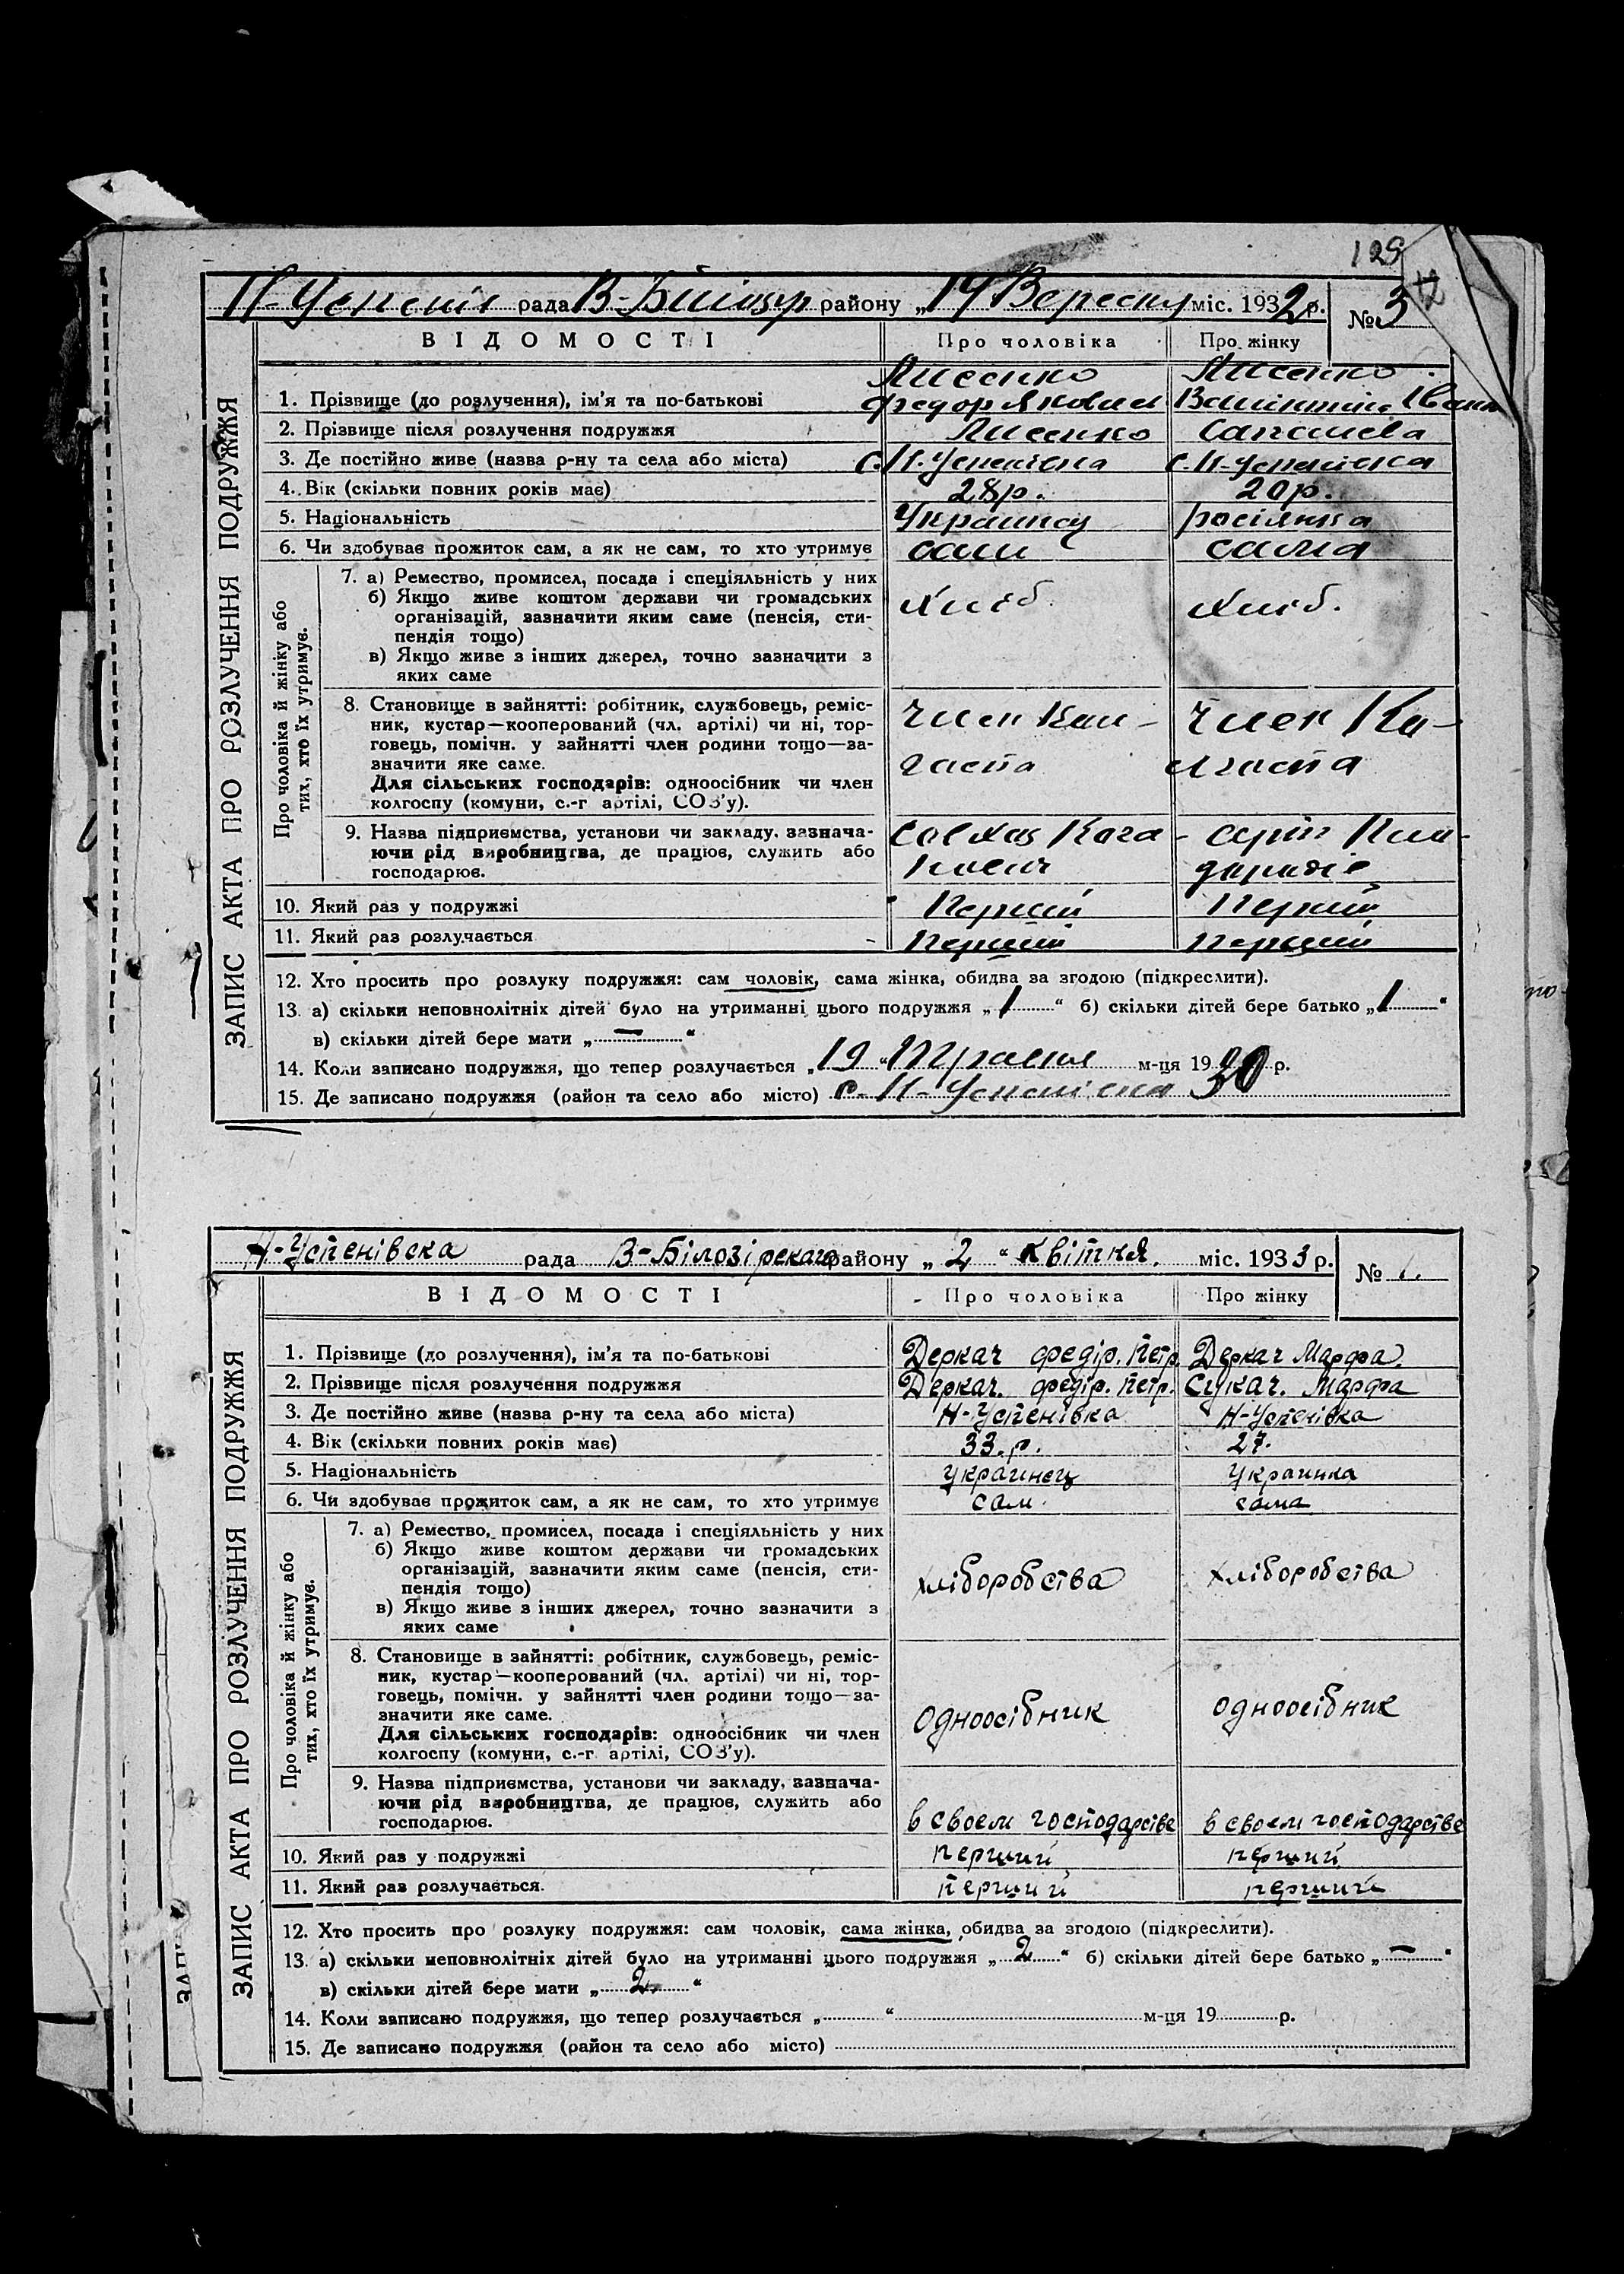 129
рада В- району „14 Вересня міс. 1932 р. № 3
ВІДОМОСТІ Про чоловіка Про жінку
Лисенко Лисенко
1. Прізвище (до розлучення), ім'я та по-батькові Федор Яковл
2. Прізвище після розлучення подружжя Лисенко
3. Де постійно живе (назва р-ну та села або міста)
4. Вік (скільки повних років має) 28р. 20р.
5. Національність Украинец росіянка
6. Чи здобуває прожиток сам, а як не сам, то хто утримує сам сама
7. а) Ремество, промисел, посада і спеціяльність у них
б) Якщо живе коштом держави чи громадських Хліб. Хліб.
організацій, зазначити яким саме (пенсія, сти-
пендія тощо)
в) Якщо живе з інших джерел, точно зазначити з
яких саме
8. Становище в зайнятті: робітник, службовець, реміс- член Кол- член Ко-
ник, кустар—кооперований (чл. артілі) чи ні, тор-
говець, помічн. у зайнятті член родини тощо—за-
значити яке саме. госпа лгоспа
Для сільських господарів: одноосібник чи член
колгоспу (комуни, с.-г артілі, СОЗ'у).
9. Назва підприємства, установи чи закладу, зазнача-
ючи рід виробництва, де працює, служить або
господарює.
10. Який раз у подружжі Перший Перший
11. Який раз розлучається перший перший
12. Хто просить про розлуку подружжя: сам чоловік, сама жінка, обидва за згодою (підкреслити).
13. а) скільки неповнолітніх дітей було на утриманні цього подружжя „ 1 “ б) скільки дітей бере батько „ 1 “
в) скільки дітей бере мати „ — “
14. Коли записано подружжя, що тепер розлучається „19“ Травня м-ця 1930 р.
15. Де записано подружжя (район та село або місто)
ЗАПИС АКТА ПРО РОЗЛУЧЕННЯ ПОДРУЖЖЯ
Про чоловіка й жінку або
тих, хто їх утримує.
Н-Успенівска рада В-Білозірскаго району „ 2 “ квітня. міс. 1933 р. № 1.
ВІДОМОСТІ Про чоловіка Про жінку
1. Прізвище (до розлучення), ім'я та по-батькові Деркач федір. Петр. Деркач Марфа.
2. Прізвище після розлучення подружжя Деркач. федір. Петр. Сукач. Марфа
3. Де постійно живе (назва р-ну та села або міста) Н-Успенівка Н-Успенівка
4. Вік (скільки повних років має) 33. р. 27.
5. Національність украинец Украинка
6. Чи здобуває прожиток сам, а як не сам, то хто утримує сам. сама
7. а) Ремество, промисел, посада і спеціяльність у них
б) Якщо живе коштом держави чи громадських
організацій, зазначити яким саме (пенсія, сти- хліборобства хліборобства
пендія тощо)
в) Якщо живе з інших джерел, точно зазначити з
яких саме
8. Становище в зайнятті: робітник, службовець, реміс-
ник, кустар—кооперований (чл. артілі) чи ні, тор-
говець, помічн. у зайнятті член родини тощо—за-
значити яке саме. одноосібник одноосібник
Для сільських господарів: одноосібник чи член
колгоспу (комуни, с.-г артілі, СОЗ'у).
9. Назва підприємства, установи чи закладу, зазнача-
ючи рід виробництва, де працює, служить або
господарює. в своем господарстве в своем господарстве
10. Який раз у подружжі перший перший
11. Який раз розлучається. перший перший
12. Хто просить про розлуку подружжя: сам чоловік, сама жінка, обидва за згодою (підкреслити).
13. а) скільки неповнолітніх дітей було на утриманні цього подружжя „ 2 “ б) скільки дітей бере батько „ — “
в) скільки дітей бере мати „ 2 “
14. Коли записано подружжя, що тепер розлучається „ “ м-ця 19 р.
15. Де записано подружжя (район та село або місто)
ЗАПИС АКТА ПРО РОЗЛУЧЕННЯ ПОДРУЖЖЯ
Про чоловіка й жінку або
тих, хто їх утримує.